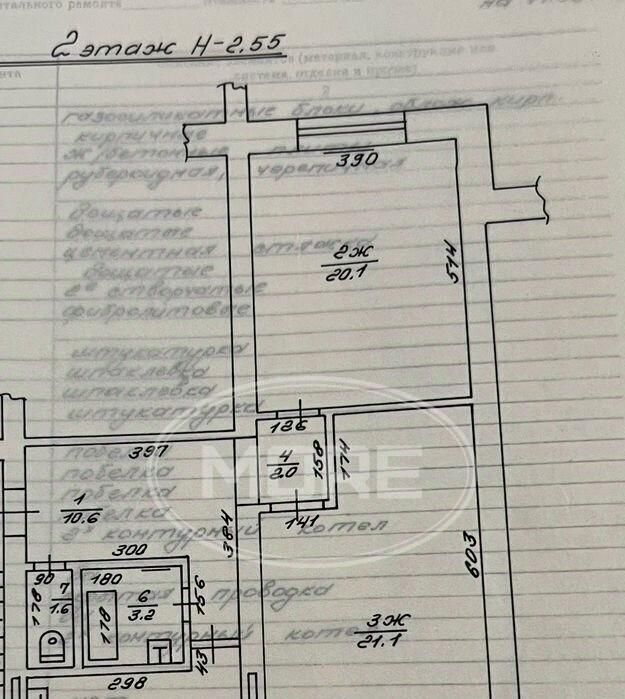 2 этаж Н-2.55
тального ремонта
(материал, конструкция или
система, отделка и прочие)
2
газосиликатные блоки, облож. кирп.
кирпичные
ж/бетонные
рубероидная, черепичная
дощатые
дощатые
цементная стяжка
дощатые
2е створчатые
фибролитовые
штукатурка
шпаклевка
шпаклевка
штукатурка
побелка
побелка
побелка
2х контурный котел
проводка
контурный
390
2Ж
20.1
514
126
4
2.0
158
174
MORE
141
397
1
10.6
384
300
90
7
1.6
178
180
6
3.2
178
156
43
298
603
3Ж
21.1